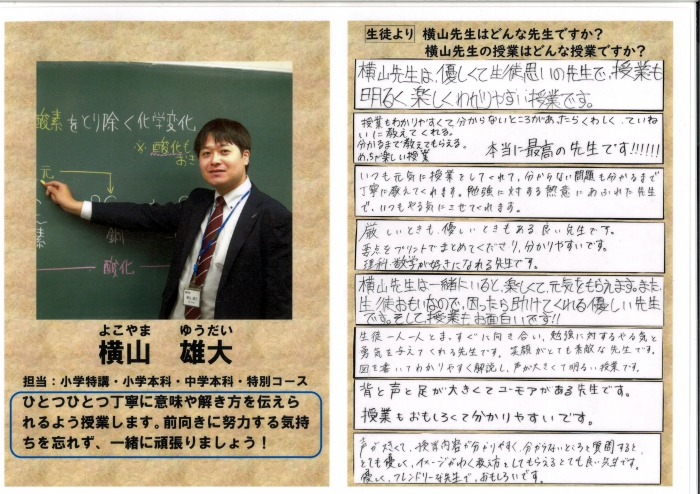 酸素をとり除く化学変化
※酸化も
おき
元
銅
酸化
よこやま ゆうだい
横山 雄大
担当：小学特講・小学本科・中学本科・特別コース
ひとつひとつ丁寧に意味や解き方を伝えら
れるよう授業します。前向きに努力する気持
ちを忘れず、一緒に頑張りましょう！
生徒より 横山先生はどんな先生ですか？
横山先生の授業はどんな授業ですか？
横山先生は、優しくて生徒思いの先生で、授業も
明るく楽しくわかりやすい授業です。
授業もわかりやすくて分からないところがあったらくわしく、ていね
いに教えてくれる。
分かるまで教えてもらえる。
めっちゃ楽しい授業 本当に最高の先生です!!!!!!
いつも元気に授業をしてくれて、分からない問題も分かるまで
丁寧に教えてくれます。勉強に対する熱意にあふれた先生
で、いつもやる気にさせてくれます。
厳しいときも、優しいときもある良い先生です。
要点をプリントでまとめてくださり、分かりやすいです。
理科・数学が好きになれる先生です。
横山先生は一緒にいると、楽しくて、元気をもらえます。また、
生徒おもいなので、困ったら助けてくれる優しい先生
です。そして、授業もお面白いです!!
生徒一人一人とまっすぐに向き合い、勉強に対するやる気と
勇気を与えてくれる先生です。笑顔がとても素敵な先生です。
図を書いてわかりやすく解説し、声が大きくて明るい授業です。
背と声と足が大きくてユーモアがある先生です。
授業もおもしろくて分かりやすいです。
声が大きくて、授業内容が分かりやすく、分からないところを質問すると、
とても優しく、イメージがわく教え方をしてもらえるとても良い先生です。
優しく、フレンドリーな先生で、おもしろいです。